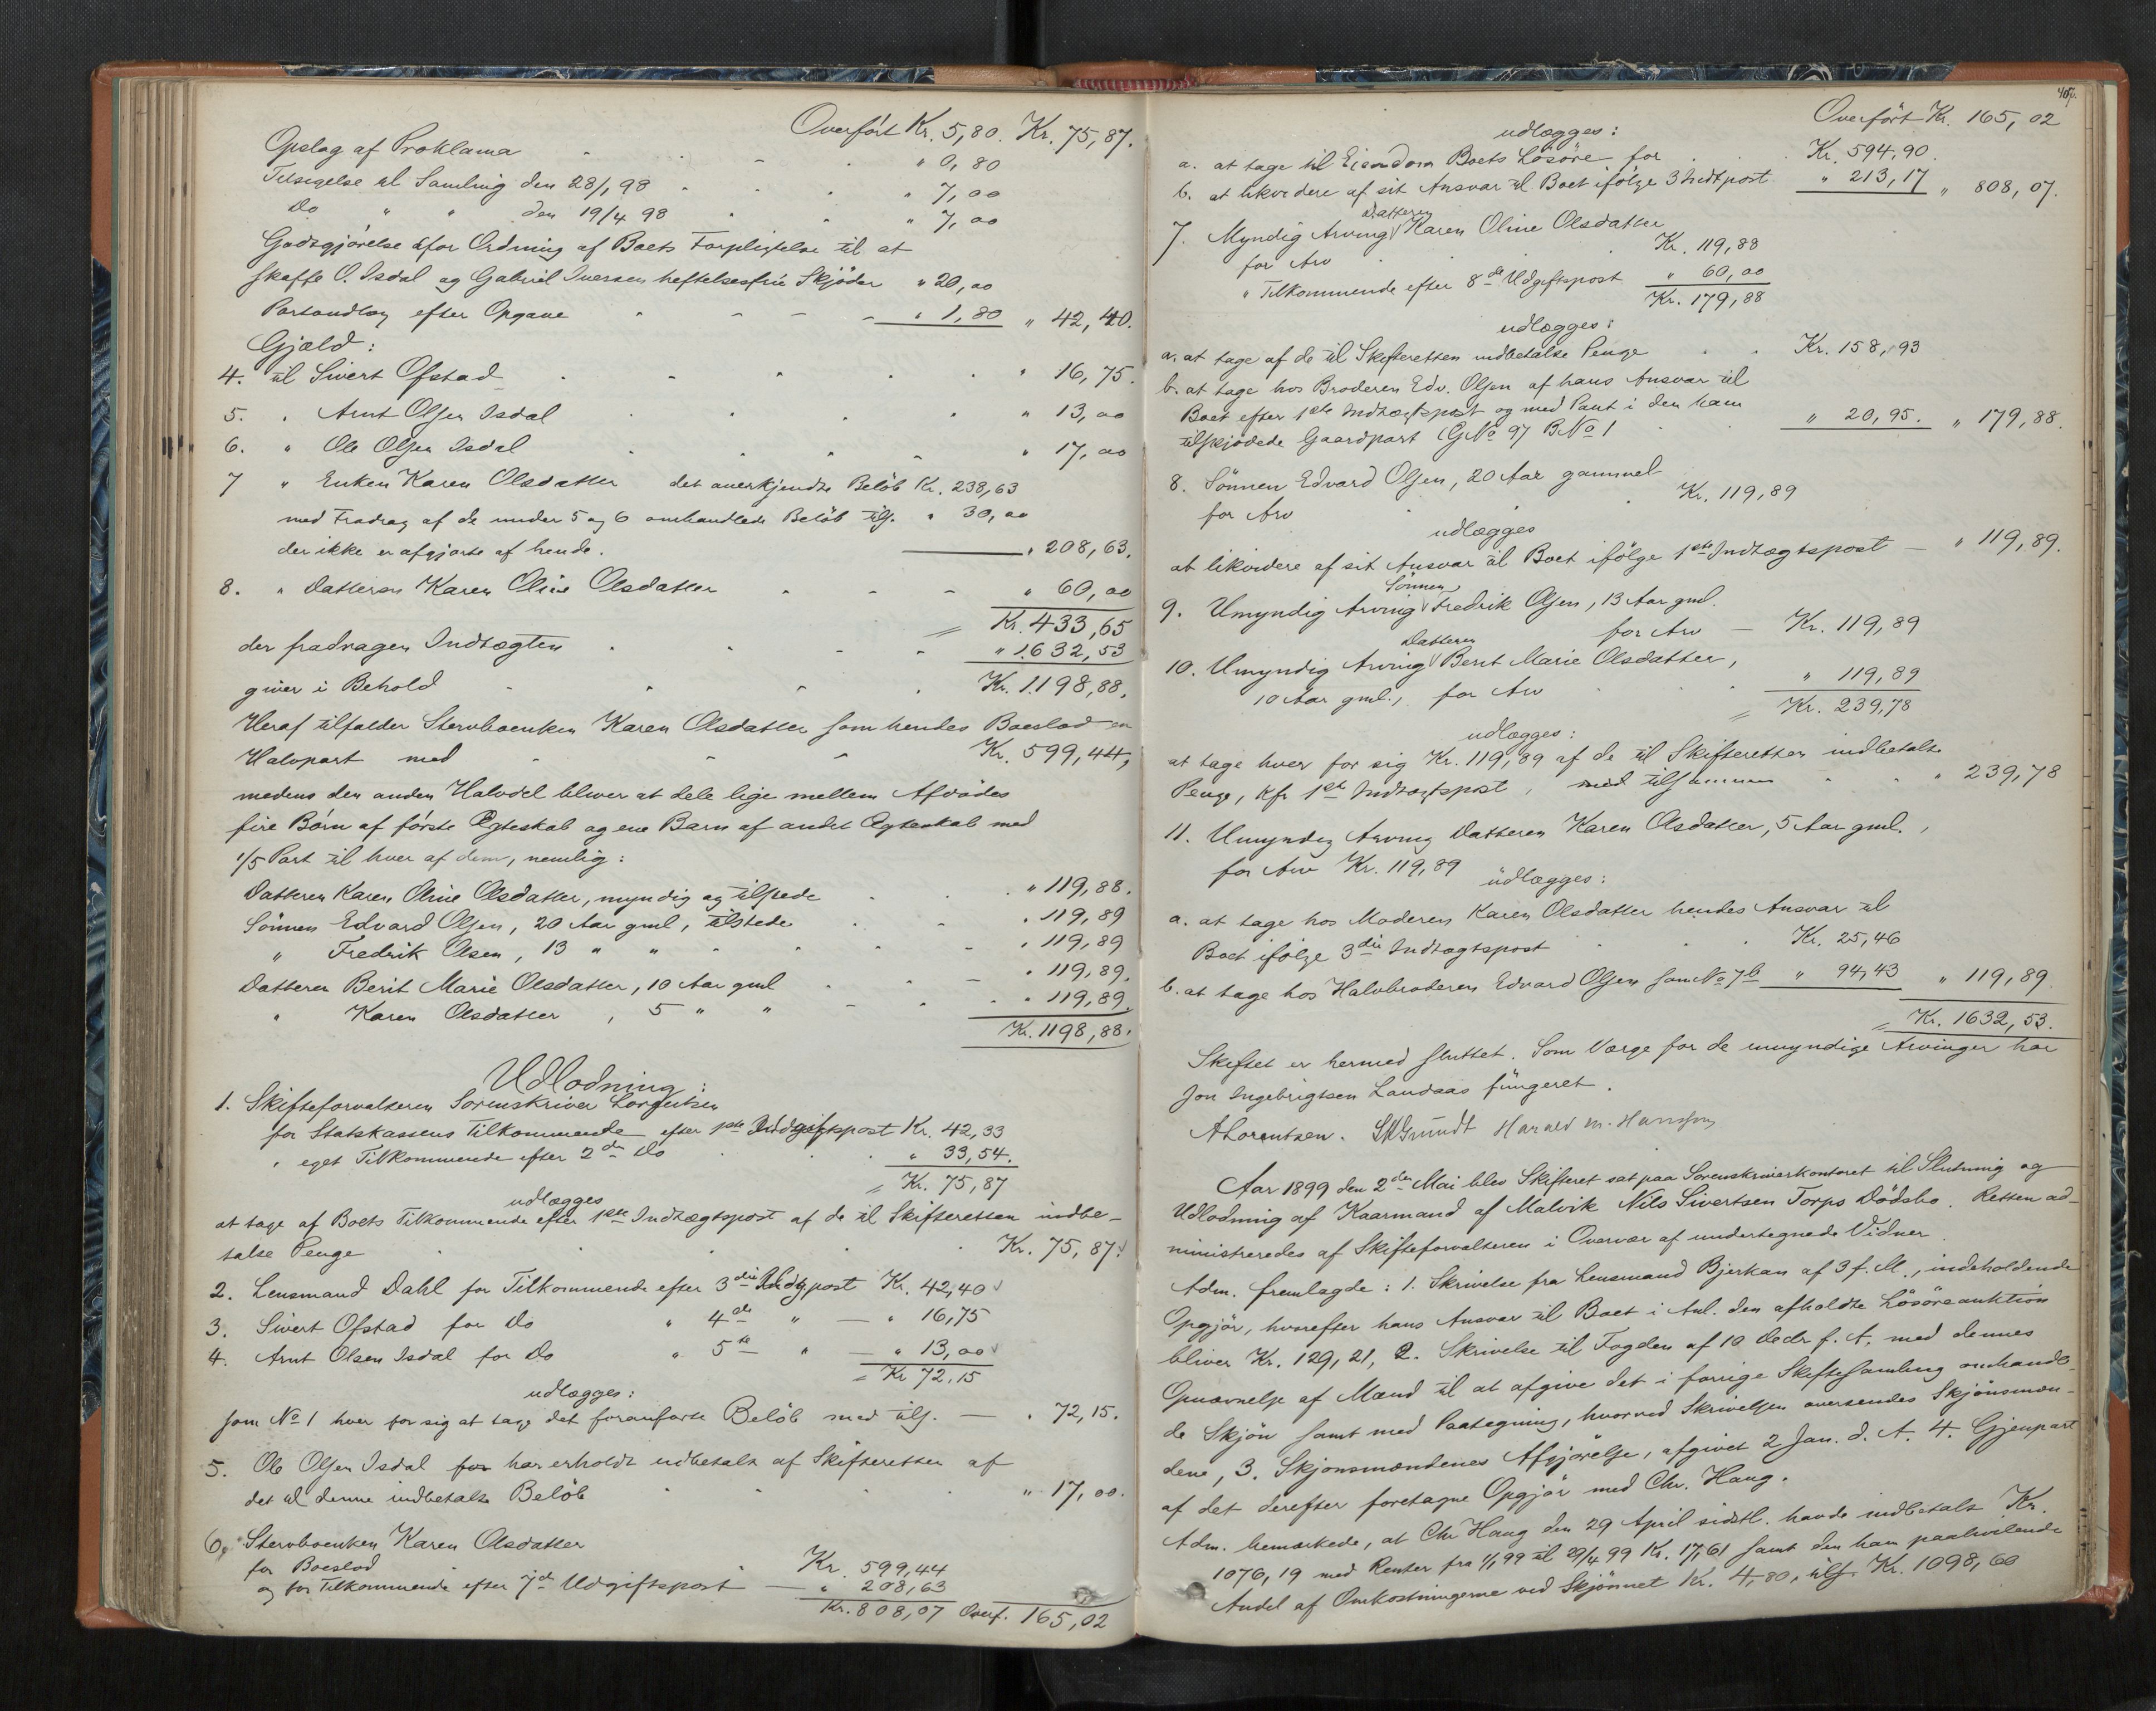 Overført Kr. 5,80. Kr. 75,87.
Opslag af Proklama " 0,80
Tilsigelse til Samling den 28/1 98 " 7,00
Do " " den 19/4 98 " 7,00
Godtgjörelse for Ordning af Boets Forpligtelse til at
skaffe O. Isdal og Gabriel Iversen heftelsesfrie Skjöder " 20,00
Portoudlæg efter Opgave " 1,80 " 42,40.
Gjæld:
4. til Sivert Ofstad " 16,75.
5. " Arnt Olsen Isdal " 13,00
6. " Ole Olsen Isdal " 17,00
7 " Enken Karen Olsdatter det anerkjendte Beløb Kr. 238,63
med Fradrag af de under 5 og 6 omhandlede Beløb tils. " 30,00
der ikke er afgjorte af hende. " 208,63.
8. " Datteren Karen Oline Olsdatter " 60,00
= Kr. 433,65
der fradragen Indtægten " 1632,53
giver i Behold Kr. 1198,88.
Heraf tilfalder Stervboenken Karen Olsdatter som hendes Boeslod en
Halvpart med Kr. 599,44,
medens den anden Halvdel bliver at dele lige mellem Afdødes
fire Børn af første Ægteskab og ene Barn af andet Ægteskab med
1/5 Part til hver af dem, nemlig:
Datteren Karen Oline Olsdatter, myndig og tilstede " 119,88.
Sönnen Edvard Olsen, 20 Aar gml, tilstede " 119,89
" Fredrik Olsen, 13 " " " 119,89
Datteren Berit Marie Olsdatter, 10 Aar gml " 119,89.
" Karen Olsdatter, 5 " " " 119,89.
Kr. 1198,88.
Udlodning:
1. Skifteforvalteren Sorenskriver Lorentzen
for Statskassens Tilkommende efter 1ste Udgiftspost Kr. 42,33
" eget Tilkommende efter 2den Do " 33,54.
= Kr. 75,87
udlægges
at tage af Boets Tilkommende efter 1ste Indtægtspost af de til Skifteretten indbe-
talte Penge Kr. 75,87.
2. Lensmand Dahl for Tilkommende efter 3die Udg.post Kr. 42,40
3. Sivert Ofstad for Do " 4de " — " 16,75
4. Arnt Olsen Isdal for Do " 5te " — " 13,00
= Kr 72,15
udlægges:
som No 1 hver for sig at tage det foranførte Beløb med tils. — " 72,15.
5. Ole Olsen Isdal for har erholdt udbetalt af Skifteretten af
det til denne indbetalte Beløb " 17,00.
6. Stervboenken Karen Olsdatter
for Boeslod Kr. 599,44
og for Tilkommende efter 7de Udgiftspost — " 208,63
Kr. 808,07 Overf. 165,02
Overført Kr. 165,02
udlægges:
a. at tage til Eiendom Boets Lösöre for Kr. 594,90.
b. at likvidere af sit Ansvar til Boet ifölge 3 Indtpost " 213,17 " 808,07.
7. Myndig Arving Datteren Karen Oline Olsdatter
for Arv Kr. 119,88
" Tilkommende efter 8de Udgiftspost " 60,00
Kr. 179,88
udlægges:
a. at tage af de til Skifteretten indbetalte Penge Kr. 158,93
b. at tage hos Broderen Edv. Olsen af hans Ansvar til
Boet efter 1ste Indtægtspost og med Pant i den ham
tilskjödede Gaardpart (GNo 97 BNo 1 " 20,95. " 179,88.
8. Sönnen Edvard Olsen, 20 Aar gammel
for Arv Kr. 119,89
udlægges
at likvidere af sit Ansvar til Boet ifölge 1ste Indtægtspost — " 119,89.
9. Umyndig Arving Sönnen Fredrik Olsen, 13 Aar gml.
for Arv — Kr. 119,89
10. Umyndig Arving Datteren Berit Marie Olsdatter,
10 Aar gml., for Arv " 119,89
= Kr. 239,78
udlægges:
at tage hver for sig Kr. 119,89 af de til Skifteretten indbetalte
Penge, kfr 1ste Indtægtspost, med tilsammen " 239,78
11. Umyndig Arving Datteren Karen Olsdatter, 5 Aar gml.,
for Arv Kr. 119,89
udlægges:
a. at tage hos Moderen Karen Olsdatter hendes Ansvar til
Boet ifölge 3die Indtægtspost Kr. 25,46
b. at tage hos Halvbroderen Edvard Olsen som No 7 b " 94,43 " 119,89.
= Kr. 1632,53.
Skiftet er hermed sluttet. Som Værge for de umyndige Arvinger har
Jon Ingebrigtsen Landaas fungeret.
ALorentzen. Grundt Harald M. Hansen
Aar 1899 den 2den Mai blev Skifteret sat paa Sorenskriverkontoret til Slutning og
Udlodning af Kaarmand af Malvik Nils Sivertsen Torps Dödsbo. Retten ad-
ministreredes af Skifteforvalteren i Overvær af undertegnede Vidner.
Adm. fremlagde: 1. Skrivelse fra Lensmand Bjerkan af 3 f. M., indeholdende
Opgjör, hvorefter hans Ansvar til Boet i Anl. den afholdte Lösöreauktion
bliver Kr. 129,21, 2. Skrivelse til Fogden af 10 Decbr f. A. med dennes
Opnævnelse af Mænd til at afgive det i forrige Skiftesamling omhandle-
de Skjön samt med Paategning, hvorved Skrivelsen oversendes Skjönsmæn-
dene, 3. Skjönsmændenes Afgjörelse, afgivet 2 Jan. d. A. 4. Gjenpart
af det derefter foretagne Opgjör med Chr. Haug.
Adm. bemærkede, at Chr Haug den 29 April sidstl. havde indbetalt Kr.
1076,19 med Renter fra 1/1 99 til 29/4 99 Kr. 17,61 samt den ham paahvilende
Andel af Omkostningerne ved Skjönnet Kr. 4,80, tils. Kr. 1098,60